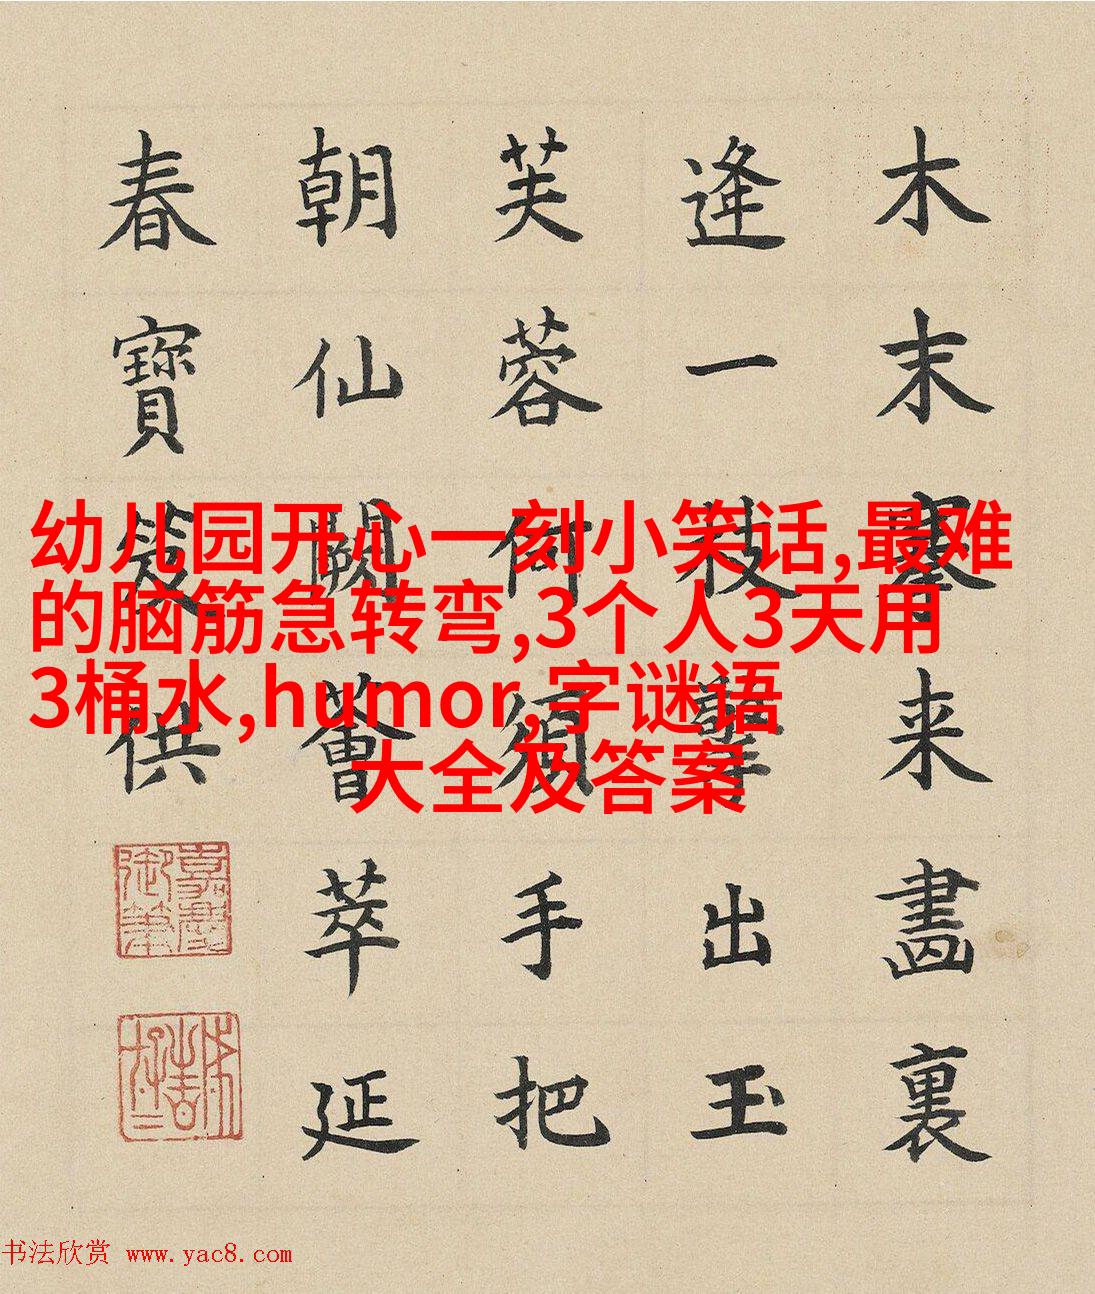 木末搴来畫裏
逢一枝擎出玉
芙蓉何須手把
朝仙闕薈萃延
春寶笈供
嘉慶
御筆
幼儿园开心一刻小笑话,最难
的脑筋急转弯,3个人3天用
3桶水,humor,字谜语
大全及答案
书法欣赏 www.yac8.com